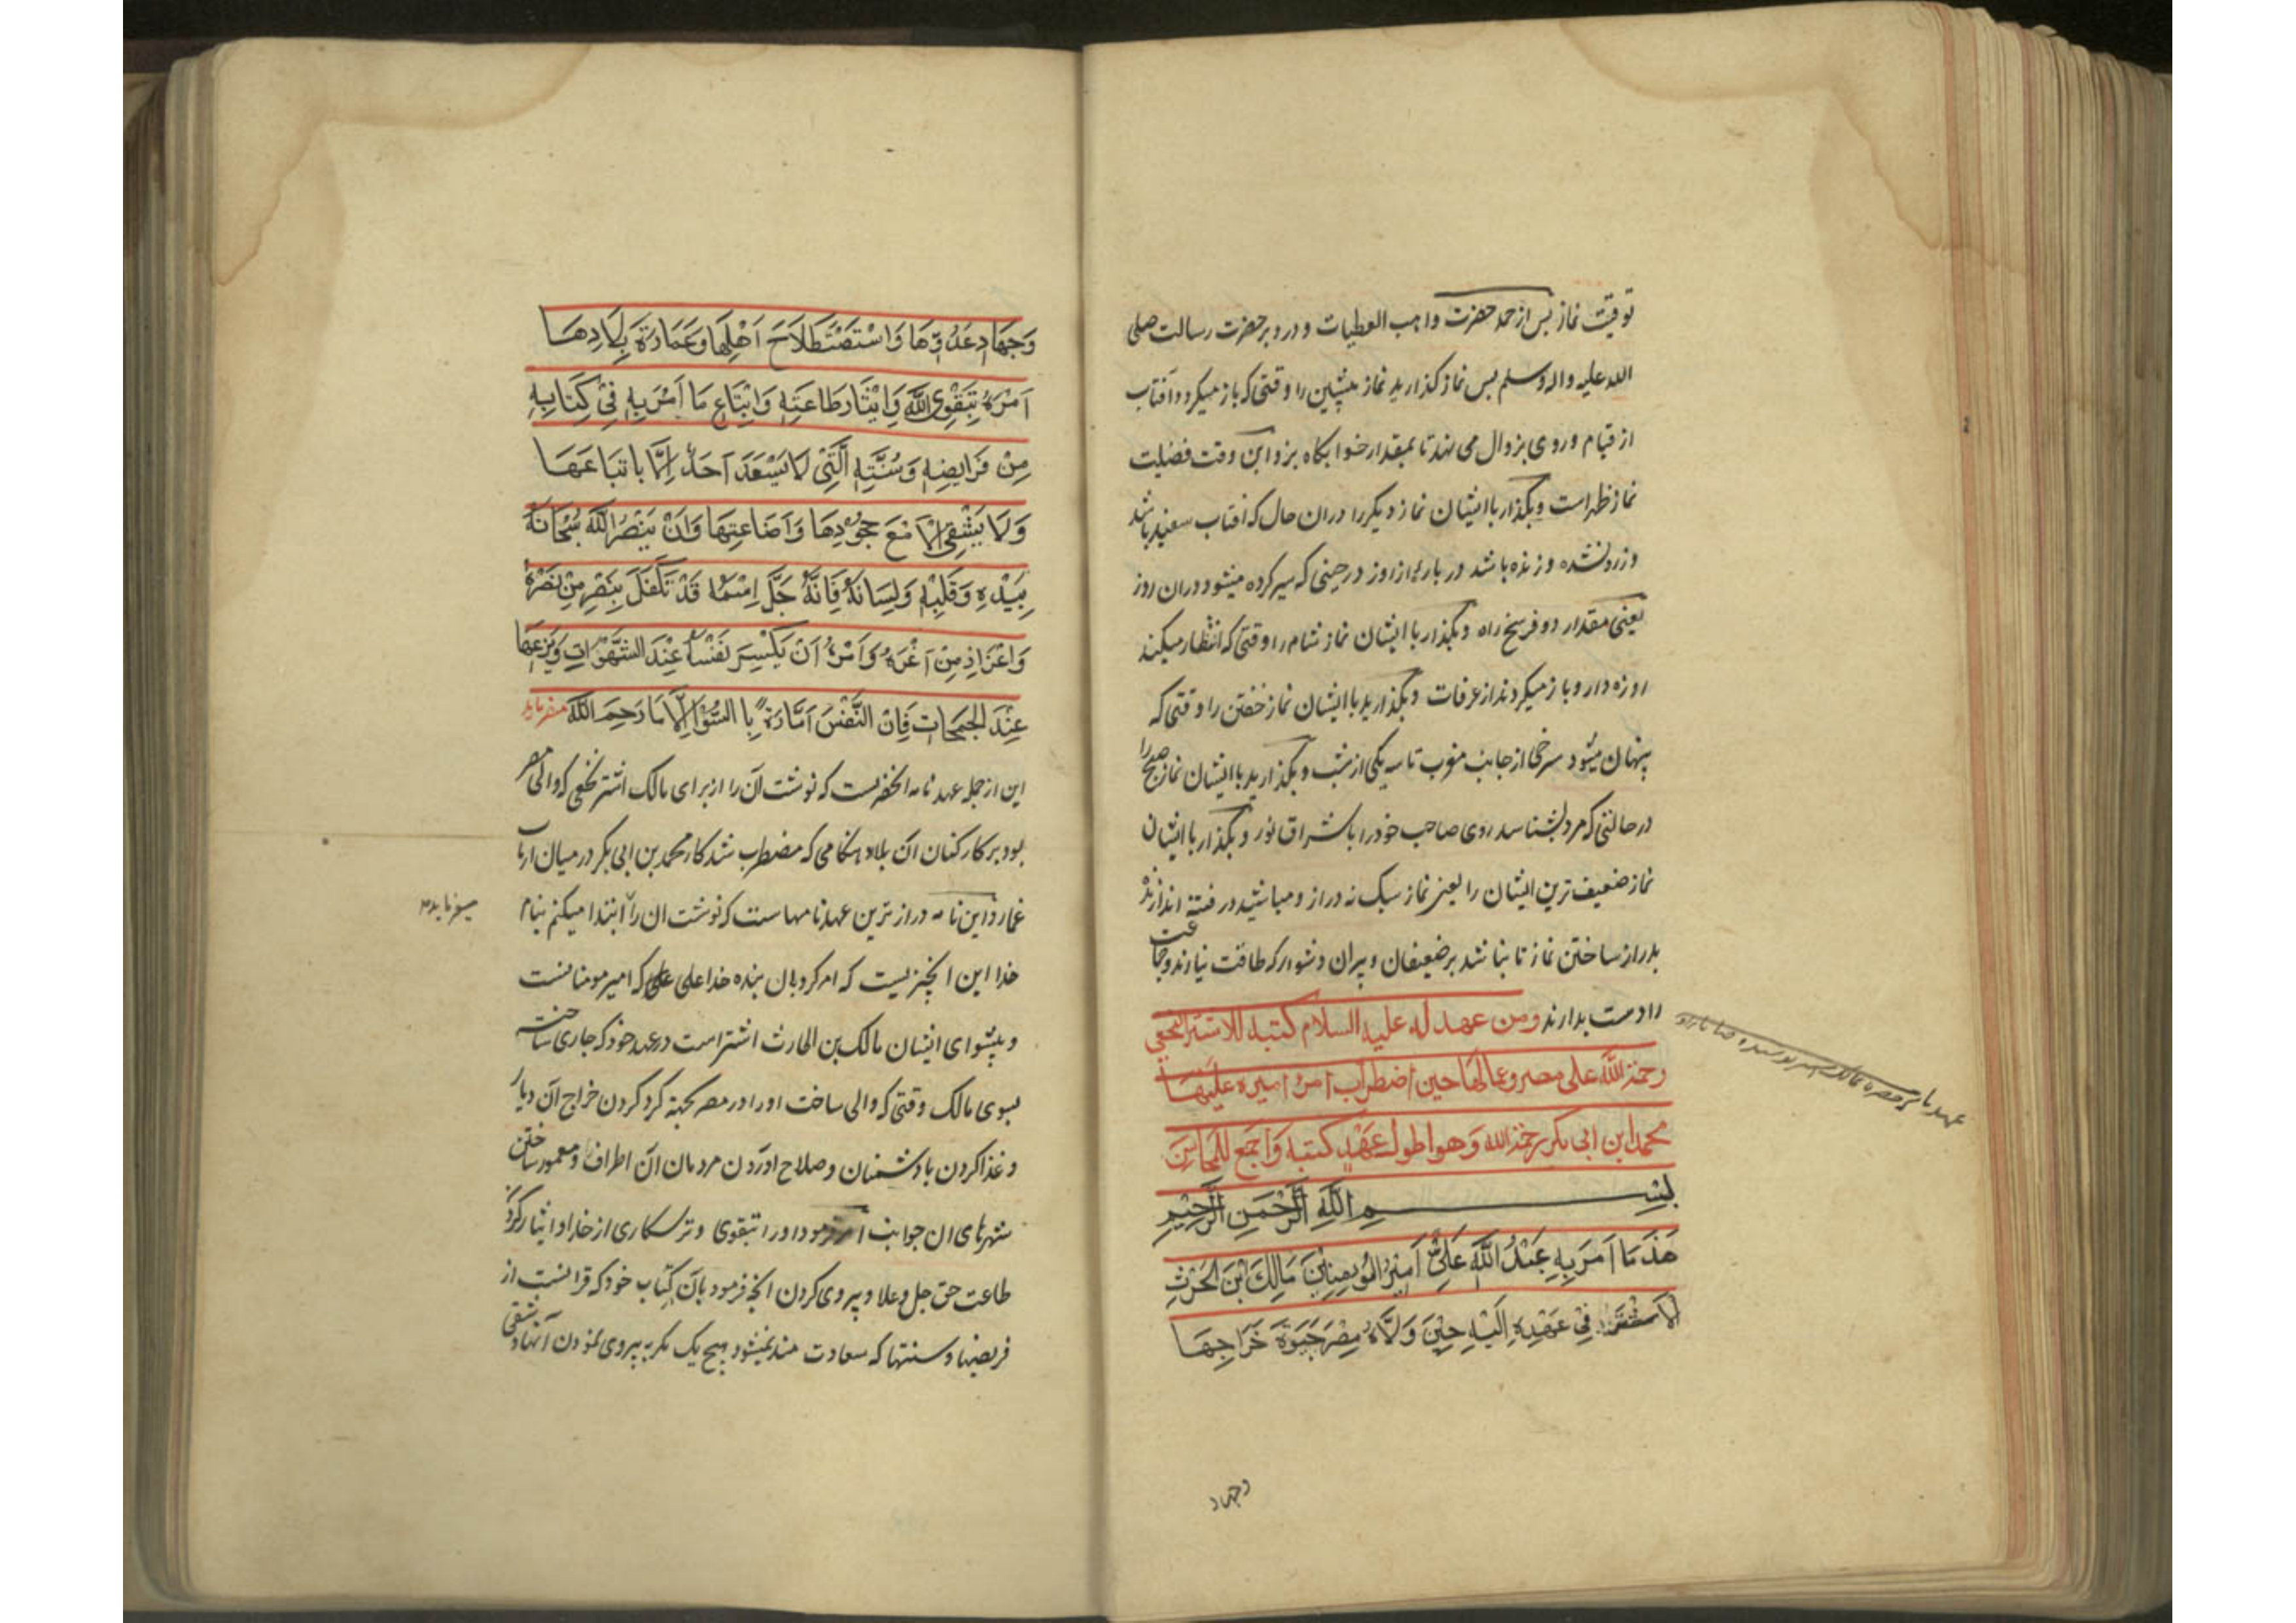 توقیت نماز پس از حمد حضرت واهب العطیات و درود بر حضرت رسالت صلی
الله علیه واله وسلم پس نماز کذارید نماز پیشین را وقتی که باز میکردد آفتاب
از قیام و روی بزوال می نهد تا بمقدار خوابکاه بز و این وقت فضیلت
نماز ظهر است و بکذار باایشان نماز دیکر را دران حال که افتاب سفید باشد
و زرد نشده و زنده باشد در پاره از روز در حینی که سیر کرده میشود دران روز
یعنی مقدار دو فرسخ راه و بکذار با ایشان نماز شام را وقتی که افطار میکند
روزه دار و باز میکردند از عرفات و بکذارید باایشان نماز خفتن را وقتی که
پنهان میشود سرخی از جانب مغرب تا سه یکی از شب و بکذارید باایشان نماز صبح را
در حالتی که مرد بشناسد روی صاحب خود را باشراق نور و بکذار باایشان
نماز ضعیف ترین ایشان را یعنی نماز سبک نه دراز و مباشید در فتنه اندازنده
بدراز ساختن نماز تا نباشد بر ضعیفان و پیران دشوار که طاقت نیارند و جماعت
را دست بدارند ومن عهد له علیه السلام کتبه للاشتر النخعی
رحمة الله علی مصر وعمالها حین اضطراب امر امیره علیها
محمد ابن ابی بکر رحمة الله وهو اطول عهد کتبه واجمع للمحاسن
بسم الله الرحمن الرحیم
هَذَ مَا اَمَرَ بِهِ عَبْدُ اللَّهِ عَلِیٌّ اَمِیْرُ الْمُوْمِنِیْنَ مَالِكَ ابْنَ الْحَرْثِ
لاَشْتَرَ فِیْ عَهْدِهِ اِلَیْهِ حِیْنَ وَلَّاهُ مِصْرَ جَبْوَةَ خَرَاجِهَا
وجهاد
وَجِهَادِ عَدُوِّهَا وَاسْتِصْلَاحَ اَهْلِهَا وَعَمَارَةَ بِلَادِهَا
اَمَرَهُ بِتَقْوِی اللَّهِ وَاِیْثَارِ طَاعَتِهِ وَاِتْبَاعِ مَا اَمَرَ بِهِ فِیْ کِتَابِهِ
مِنْ فَرَایِضِهِ وَسُنَّتِهِ الَّتِیْ لَا یَسْعَدُ اَحَدٌ اِلَّا بِاتِّبَاعِهَا
وَلَا یَشْقِی اِلَّا مَعَ جُحُوْدِهَا وَاَضَاعِتِهَا وَاَنْ یَنْصُرَ اللَّهَ سُبْحَانَهُ
بِیَدِهِ وَقَلْبِهِ وَلِسَانِهُ فَاِنَّهُ جَلَّ اِسْمُهُ قَدْ تَکَفَّلَ بِنَصْرِ مِنْ نَصَرَهُ
وَاعْزَازِ مِنْ اَعَزَّهُ وَاَمَرَهُ اَنْ یَکْسِرَ نَفْسَهُ عِنْدَ الشَّهَوَاتِ وَیَزَعَهَا
عِنْدَ الْجَمَحَاتِ فَاِنَّ النَّفْسَ اَمَّارَةٌ بِالسُّوْءِ اِلَّا مَا رَحِمَ اللَّهُ میفرماید
این از جمله عهد نامه انحضرتست که نوشت آن را از برای مالک اشتر نخعی که والی مصر
بود بر کارکنان آن بلاد هنکامی که مضطرب شد کار محمد بن ابی بکر در میان ارباب
و این نامه دراز ترین عهد نامهاست که نوشت ان را ابتدا میکنم بنام
خدا این آنچیزیست که امر کرد بان بنده خدا علی که امیر مومنانست
و پیشوای ایشان مالک بن الحارث اشتر است در عهد خود که جاری ساخت
بسوی مالک وقتی که والی ساخت اورا در مصر بجهته کرد کردن خراج آن دیار
و غذا کردن با دشمنان و صلاح اوردن مردمان آن اطراف و معمور ساختن
شهرهای ان جوانب امر فرمود اورا بتقوی و ترسکاری از خدا و ایثار کردن
طاعت حق جل و علا و پیروی کردن انچه فرمود بآن کتاب خود که قرانست از
فریضها و سنتها که سعادت مند نمیشود هیچ یک مکر به پیروی نمودن آنها و شقی
میفرماید